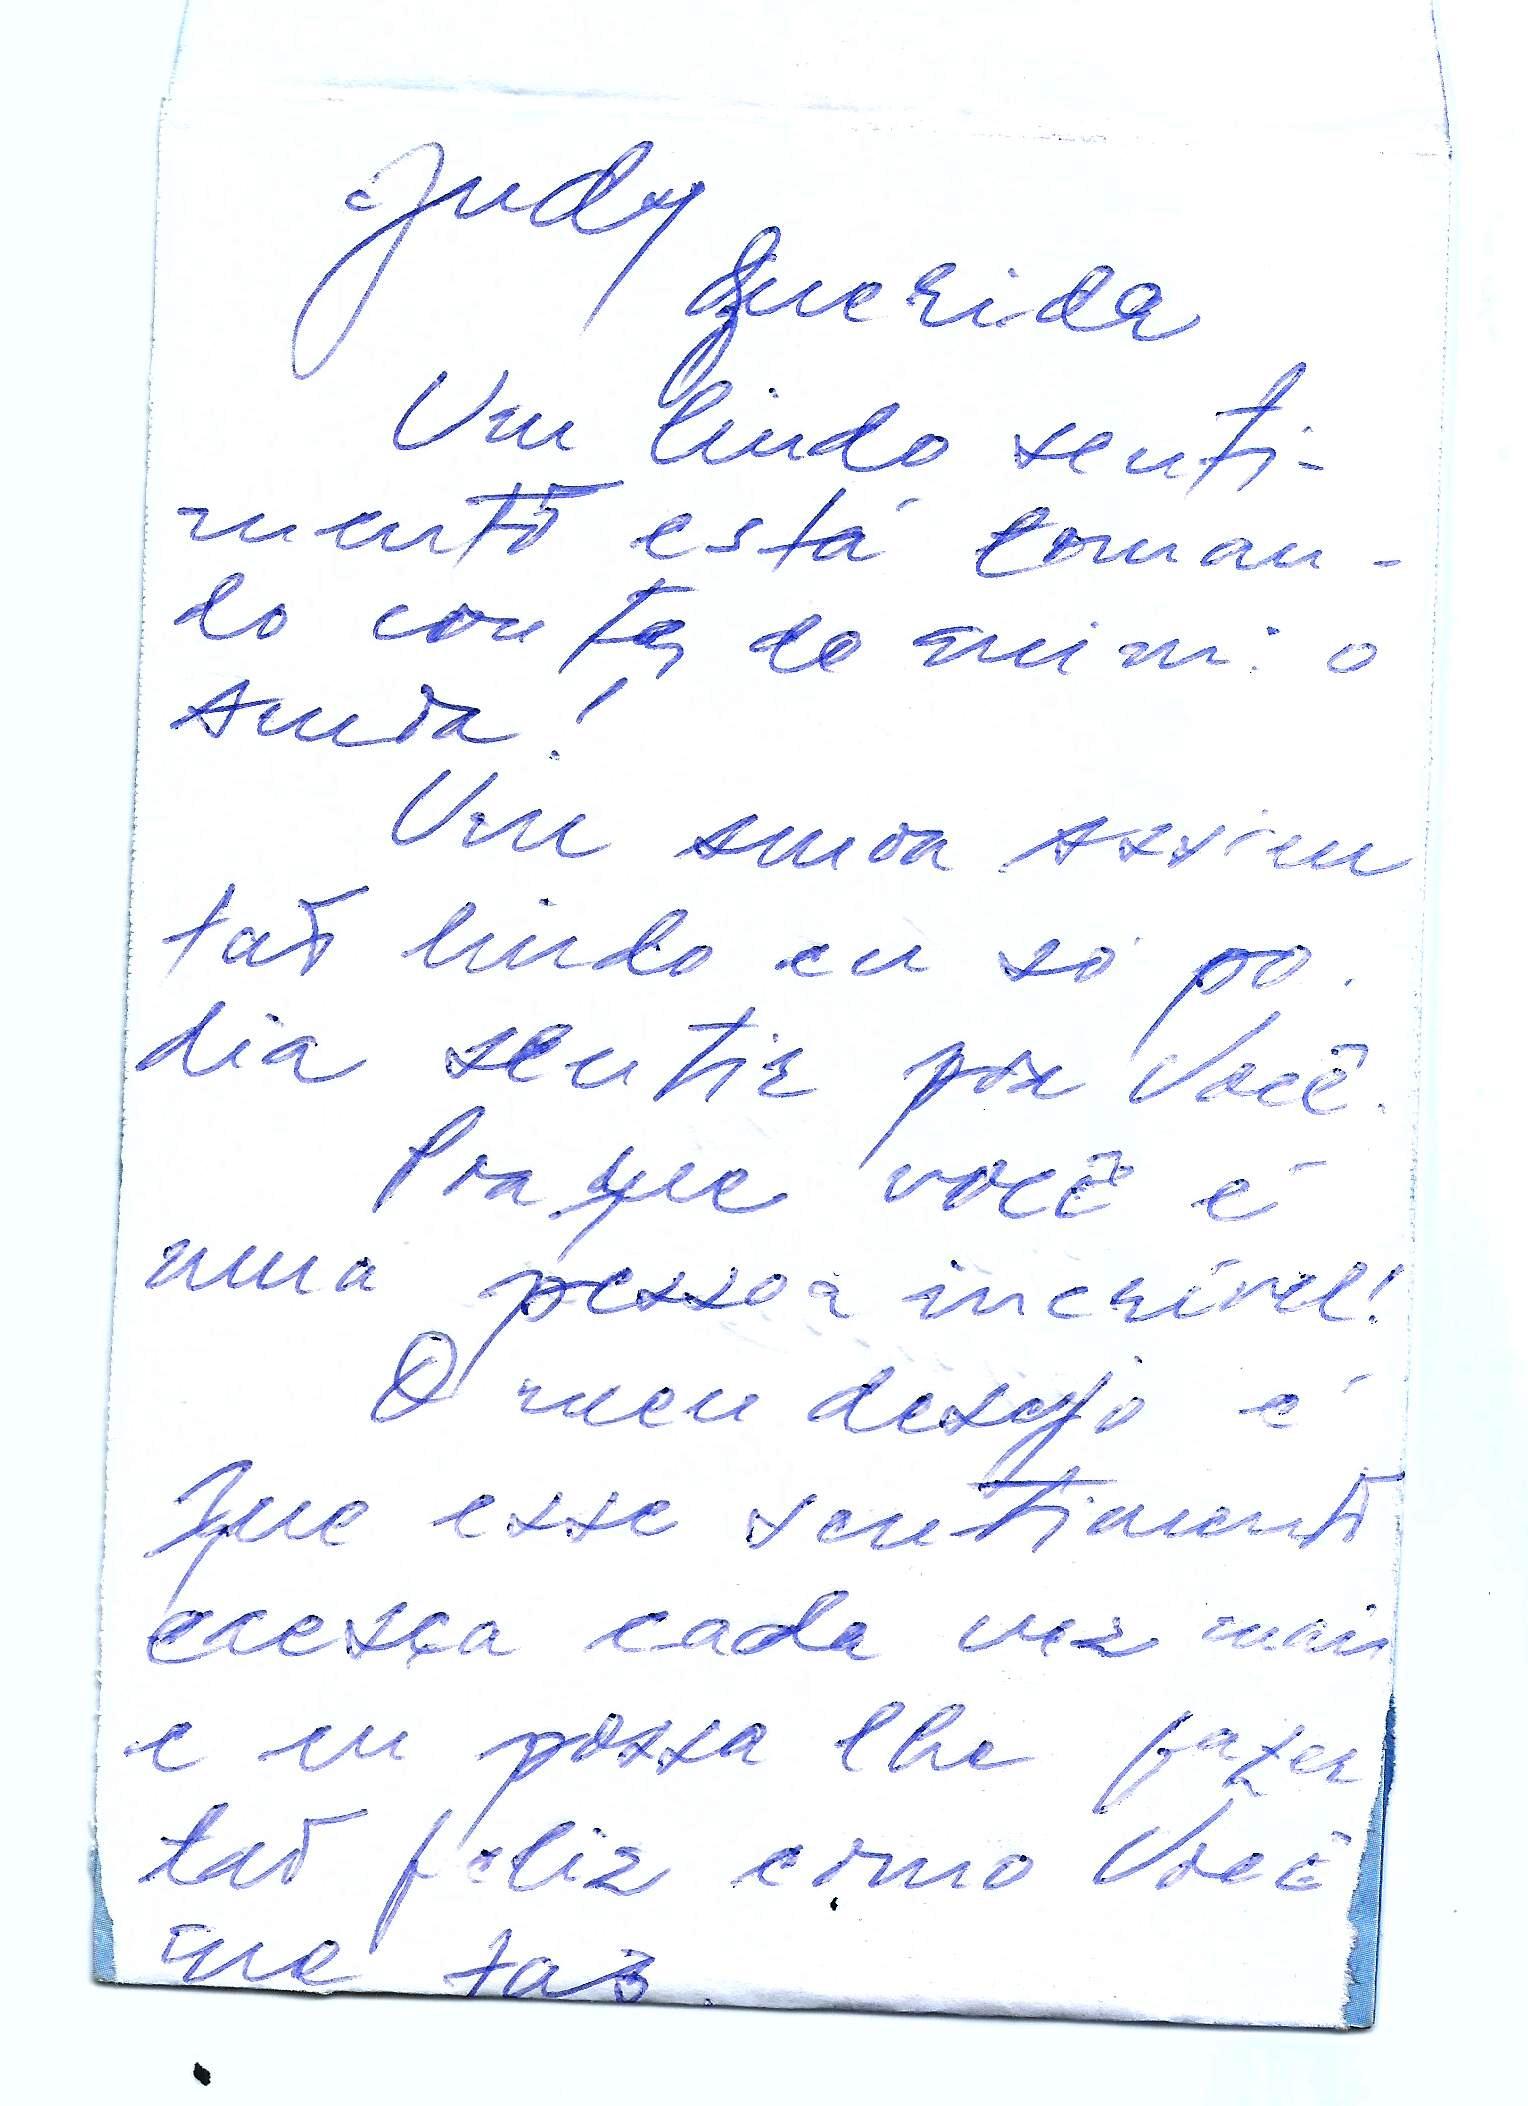 Judy
Querida
Um lindo senti-
mento está toman-
do conta de mim: o
amor!
Um amor assim
tão lindo eu só po-
dia sentir por você.
Porque você é
uma pessoa incrível!
O meu desejo é
que esse sentimento
cresça cada vez mais
e eu possa lhe fazer
tão feliz como você
me faz.